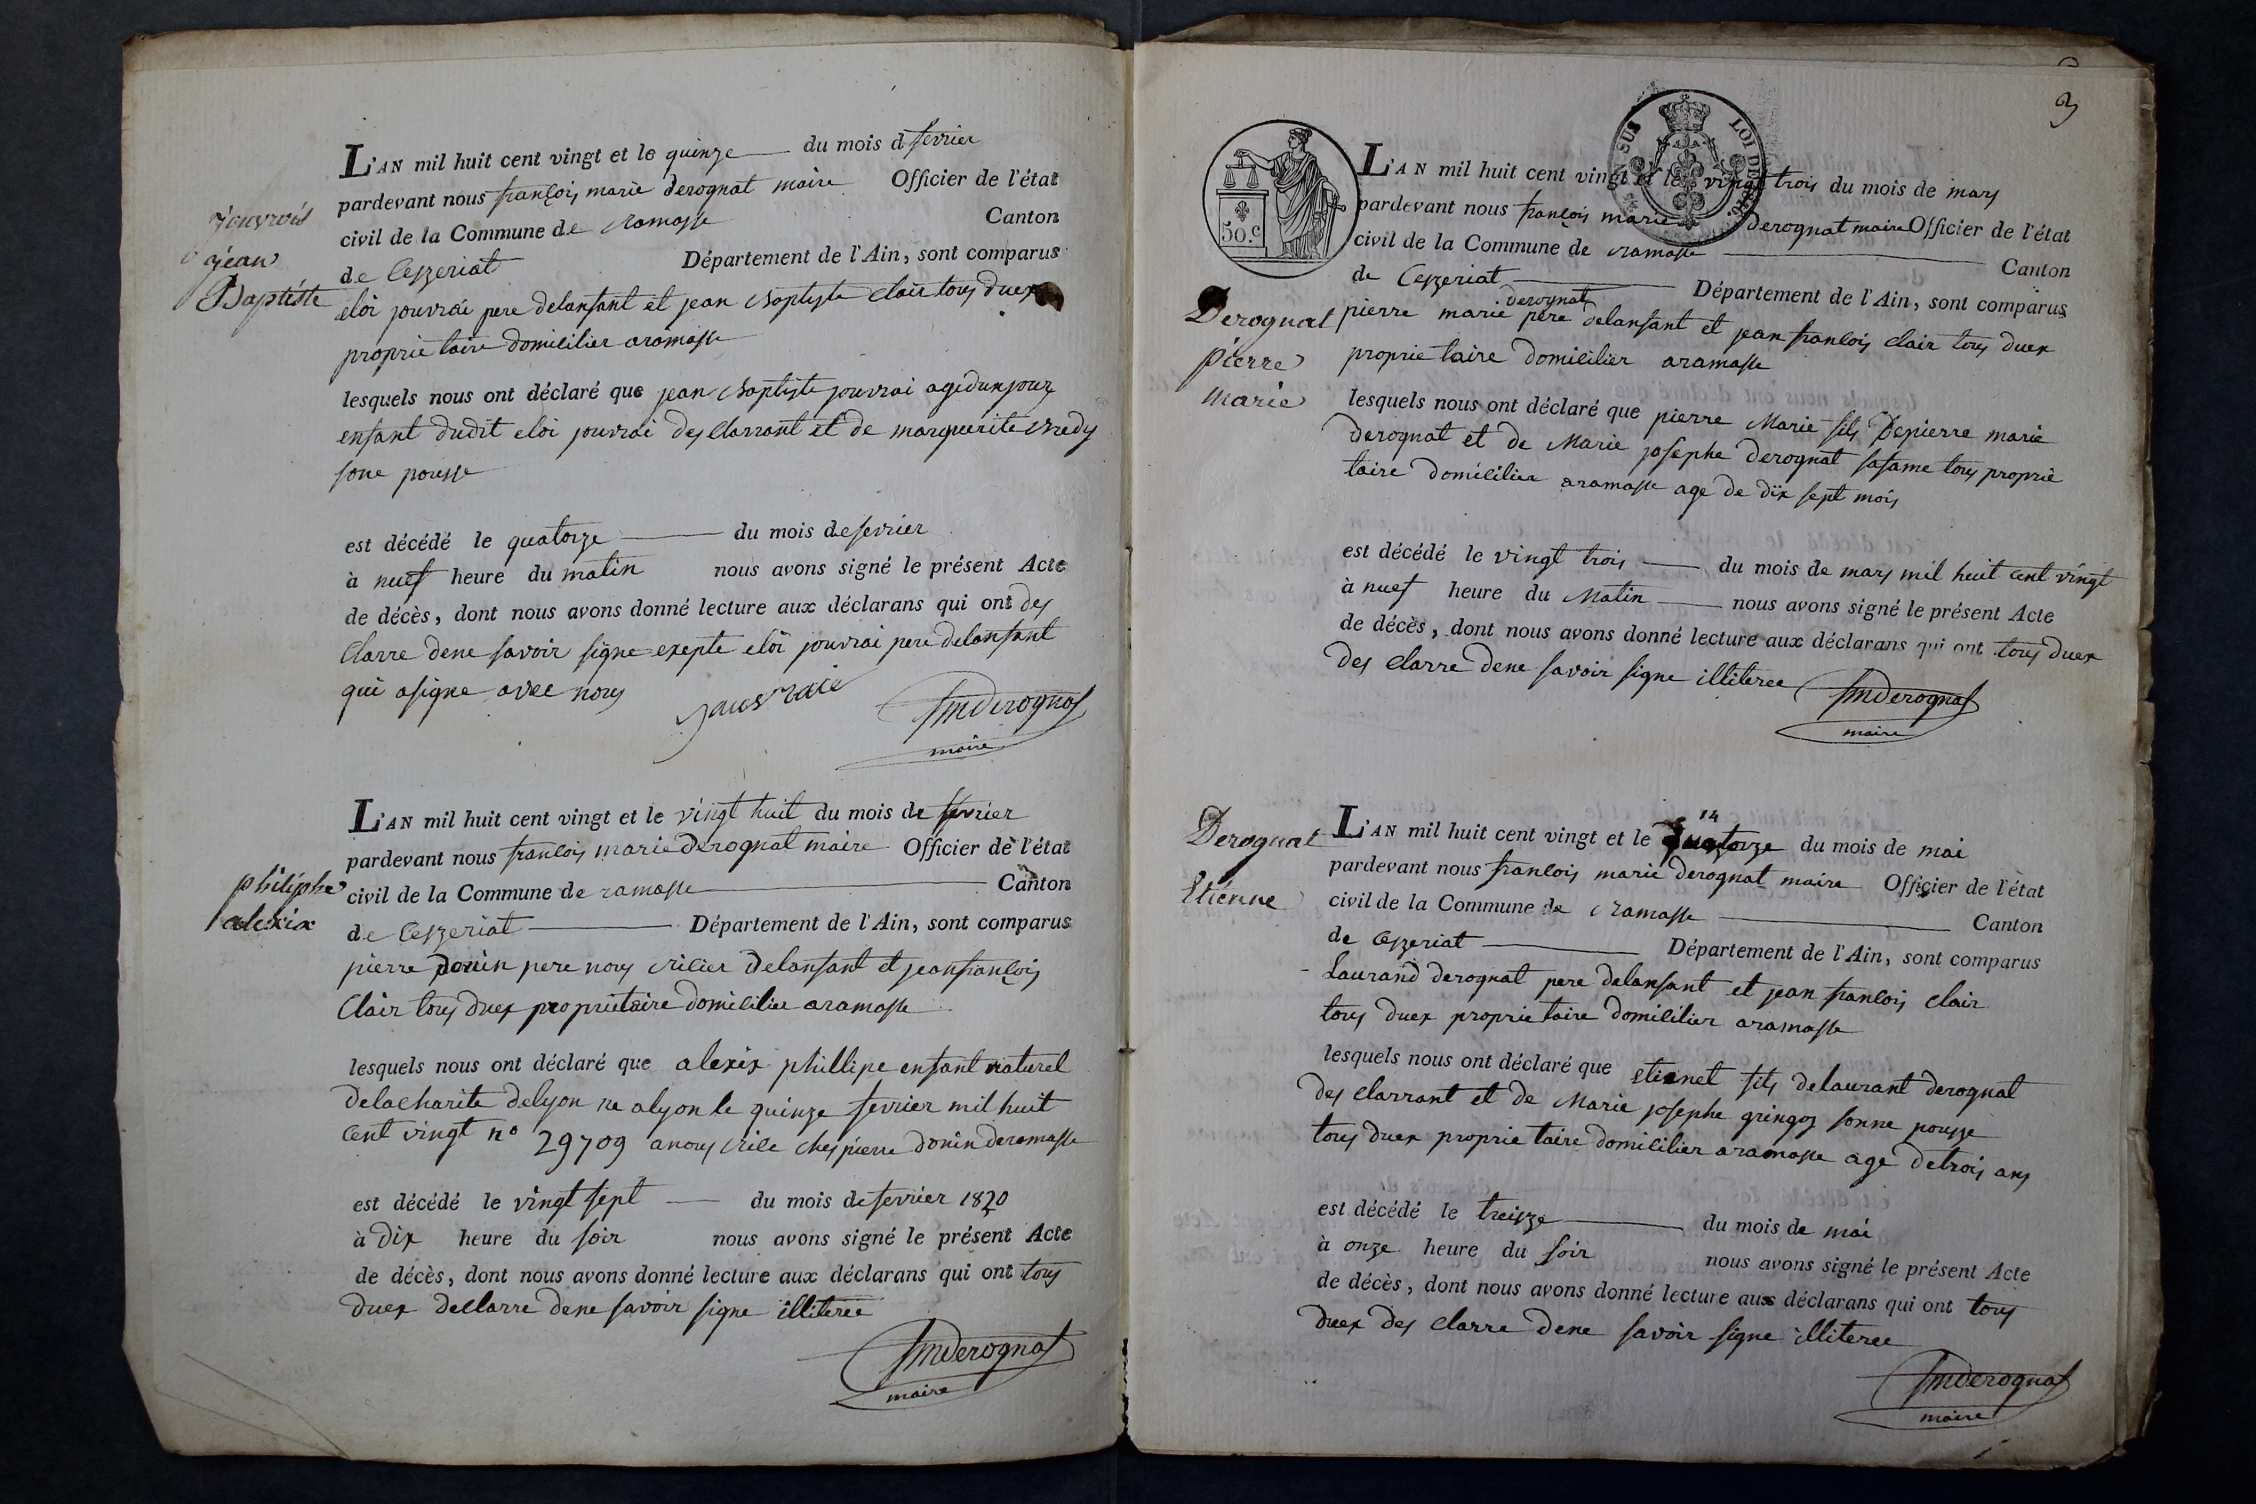 jouvrois
jean
Baptiste
L'AN mil huit cent vingt et le quinze du mois d fevrier
pardevant nous françois marie derognat maire Officier de l'état
civil de la Commune de ramasse Canton
de Ceyzeriat Département de l'Ain, sont comparus
eloi jouvrai pere delanfant et jean baptyste clair tous duex
proprietaire domicilier aramasse
lesquels nous ont déclaré que jean baptyste jouvrai age dun jour
enfant dudit eloi jouvrai des clarrant et de marguerite
sone pousse
est décédé le quatorze du mois de fevrier
à nuef heure du matin nous avons signé le présent Acte
de décès, dont nous avons donné lecture aux déclarans qui ont des
clarre dene savoir signe exepte eloi jouvrai pere delanfant
qui asigne avec nous
fmderognat
maire
philiphe
alexix
L'AN mil huit cent vingt et le vingt huit du mois de fevrier
pardevant nous francois marie derognat maire Officier de l'état
civil de la Commune de ramasse Canton
de Ceyzeriat Département de l'Ain, sont comparus
pierre donin pere nous ricier delanfant et jean françois
Clair tous duex proprietaire domicilier aramasse
lesquels nous ont déclaré que alexix phillipe enfant naturel
delacharite delyon ne alyon le quinze fevrier mil huit
cent vingt n° 29709 anous rice ches pierre donin deramasse
est décédé le vingt sept du mois de fevrier 1820
à dix heure du soir nous avons signé le présent Acte
de décès, dont nous avons donné lecture aux déclarans qui ont tous
duex declarre dene savoir signe illiteree
fmderognat
maire
3
50.c
SUS LOI DE
Derognat
pierre
marie
L'AN mil huit cent vingt et le vingt trois du mois de mars
pardevant nous françois marie derognat maire Officier de l'état
civil de la Commune de ramasse Canton
de Ceyzeriat Département de l'Ain, sont comparus
derognat
pierre marie pere delanfant et jean francois clair tous duex
proprietaire domicilier aramasse
lesquels nous ont déclaré que pierre Marie fils Depierre marie
derognat et de Marie josephe derognat safame tous proprie
taire domicilier aramasse age de dix sept mois
est décédé le vingt trois du mois de mars mil huit cent vingt
à nuef heure du Matin nous avons signé le présent Acte
de décès, dont nous avons donné lecture aux déclarans qui ont tous duex
des clarre dene savoir signe illiteree
fmderognat
maire
Derognat
Etienne
14
L'AN mil huit cent vingt et le quatorze du mois de mai
pardevant nous francois marie derognat maire Officier de l'état
civil de la Commune de ramasse Canton
de Ceyzeriat Département de l'Ain, sont comparus
Laurand derognat pere delanfant et jean francois clair
tous duex proprietaire domicilier aramasse
lesquels nous ont déclaré que etienet fils delaurant derognat
des clarrant et de Marie josephe gringoz sonne pousse
tous duex proprietaire domicilier aramasse age detrois ans
est décédé le treizze du mois de mai
à onze heure du soir nous avons signé le présent Acte
de décès, dont nous avons donné lecture aux déclarans qui ont tous
duex des clarre dene savoir signe illiteree
fmderognat
maire